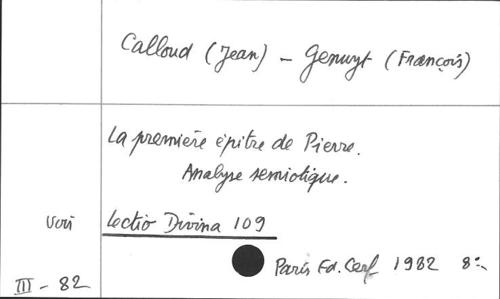 Calloud (Jean) - Genuyt (François)
La première épitre de Pierre.
Analyse semiotique.
Voir Lectio Divina 109
Paris Ed. Cerf 1982 8:-
III - 82